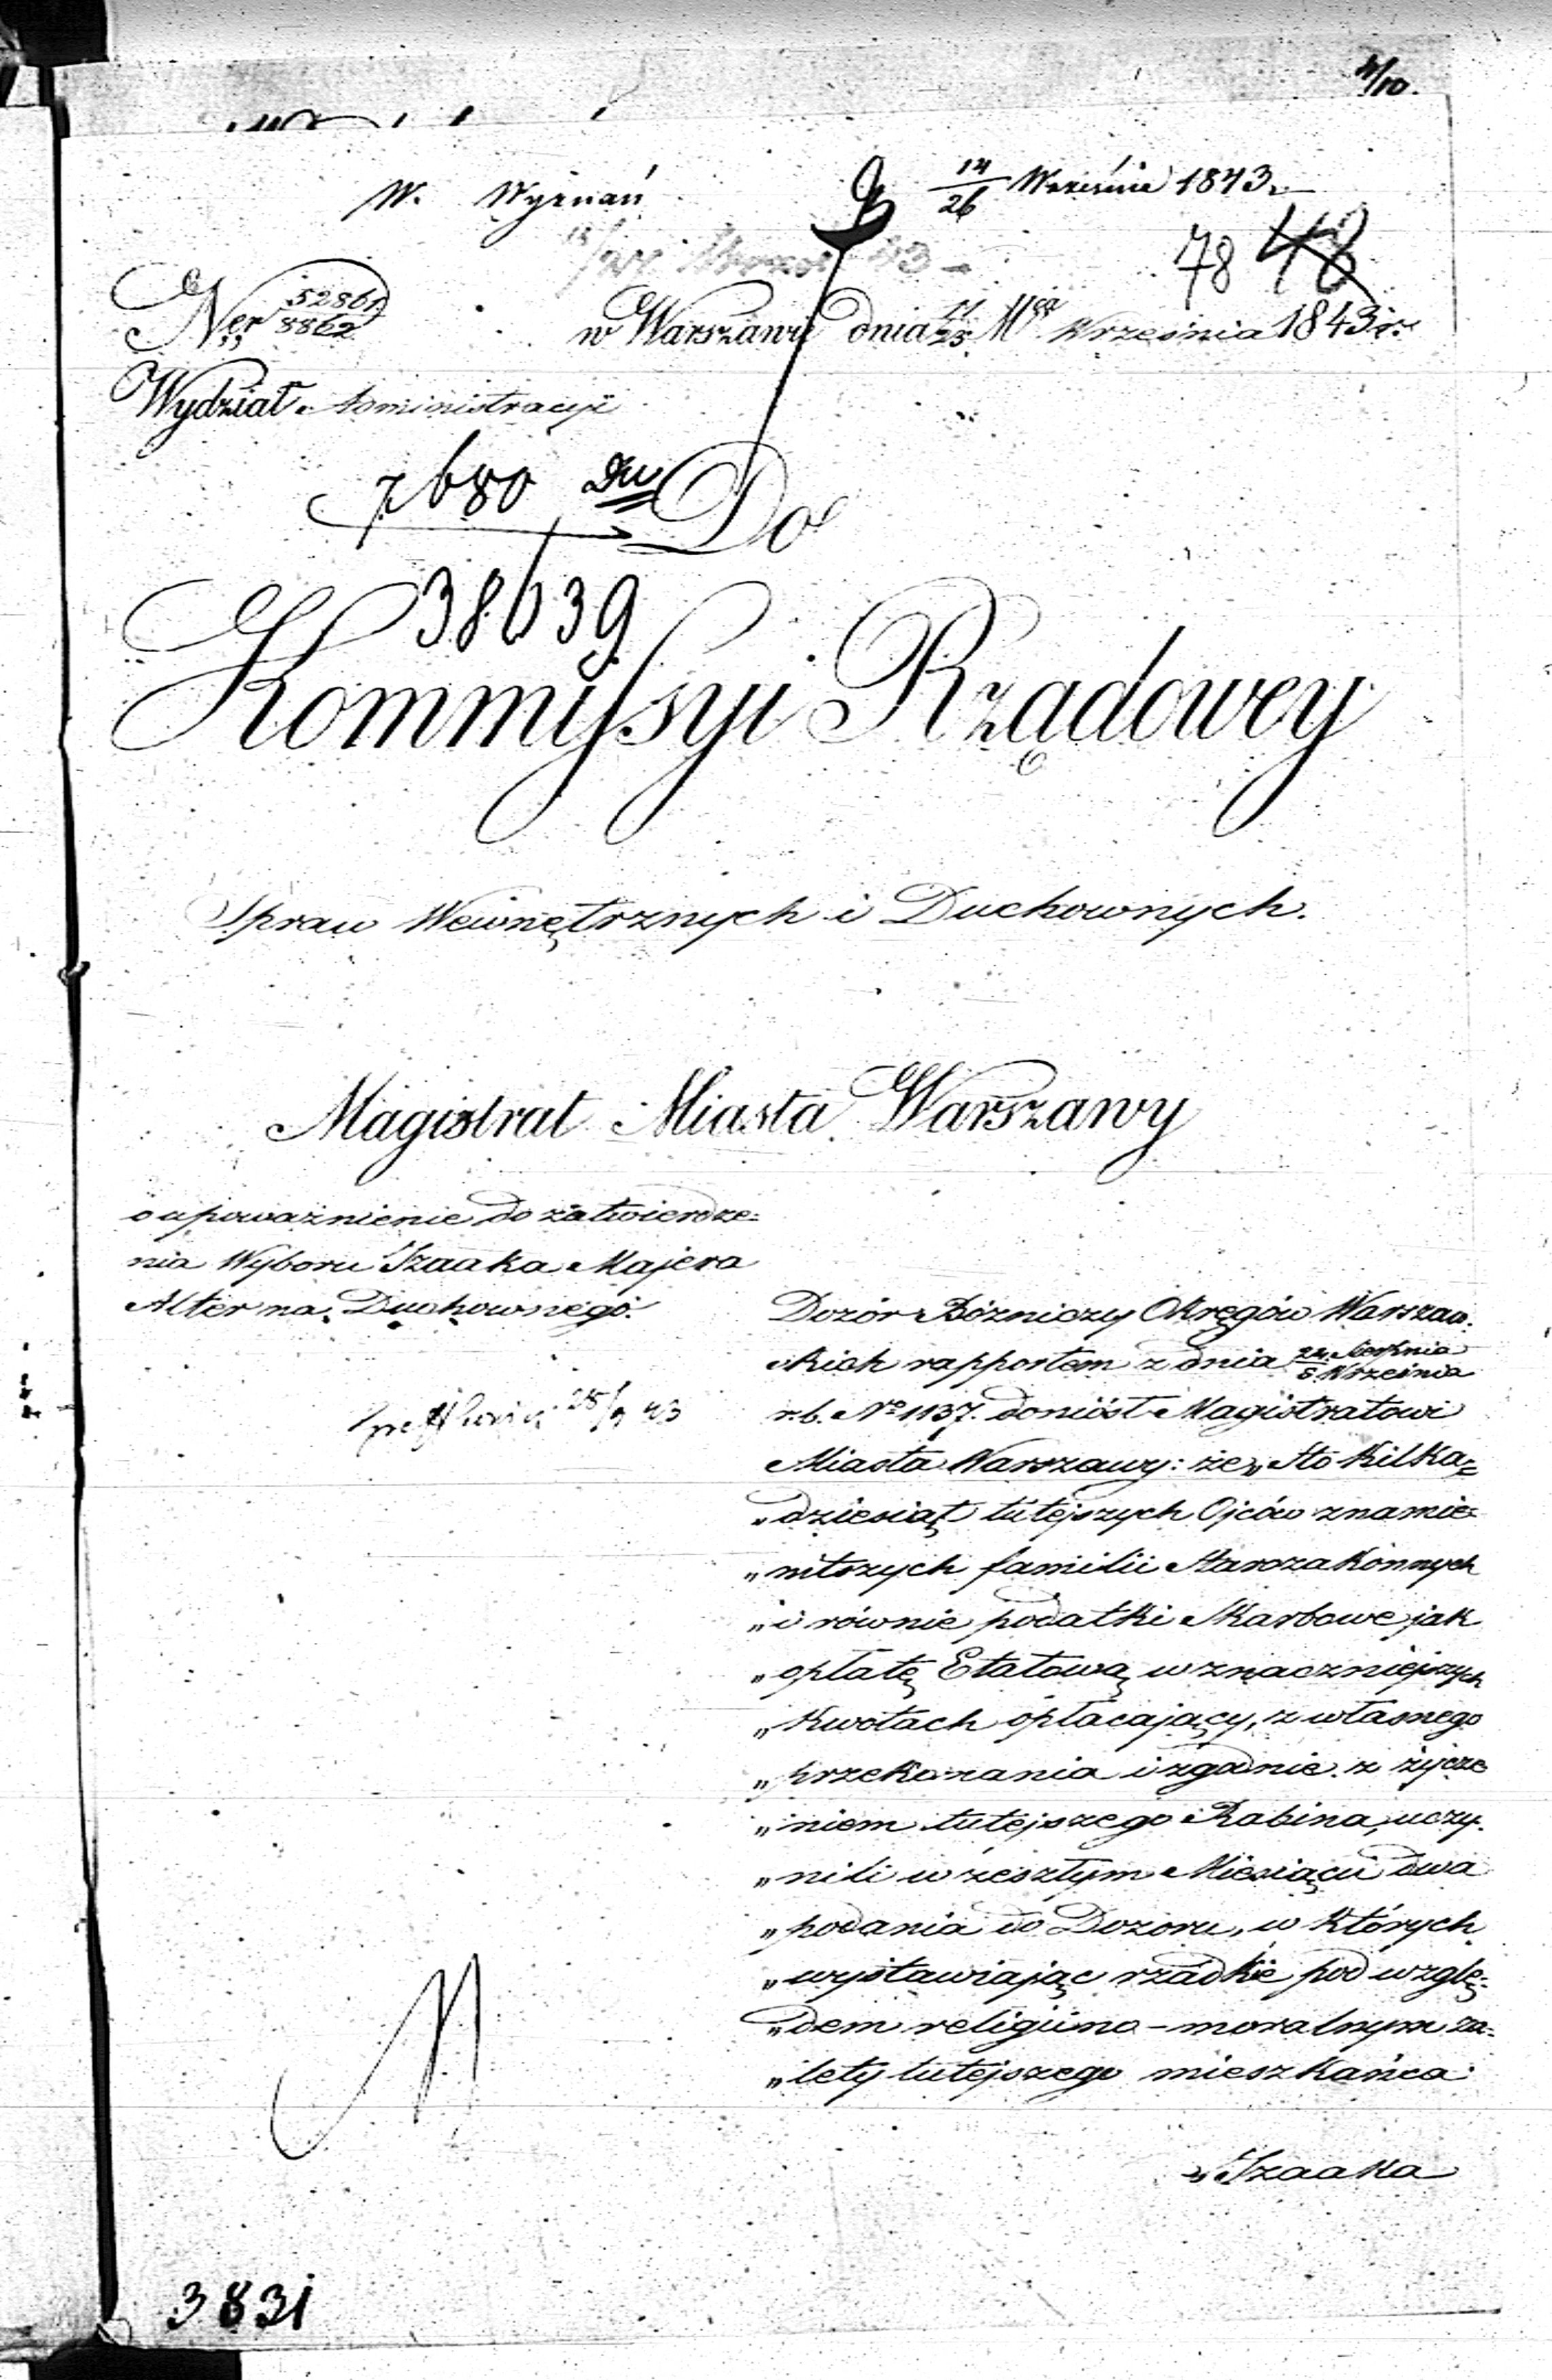 4/10.
W. Wyznań 14/26 Wrzesnia 1843 r.
78 48
Ner 52861/8862 w Warszawie dnia 11/23 Mca Września 1843 r.
Wydział Administracyi
7680 Dw Do
38639
Kommyssyi Rządowey
Spraw Wewnętrznych i Duchownych.
Magistrat Miasta Warszawy
o upoważnienie do zatwierdze=
nia Wyboru Izaaka Majera
Alter na Duchownego.
25/9 43
Dozór Bóżniczy Okręgów Warszaw.
skich rapportem z dnia 24 Sierpnia/5 Września
r.b. No 1137. doniósł Magistratowi
Miasta Warszawy: że „Sto Kilka=
„dziesiąt tutejszych Ojców znamie=
„nitszych familii Starozakonnych
„i równie podatki Skarbowe jak
„opłatę Etatową w znaczniejszych
„Kwotach opłacający, z własnego
„przekonania i zgodnie z życze
„niem tutejszego Rabina, uczy.
„nili w zeszłym Miesiącu dwa
„podania do Dozoru, w których
„wystawiając rzadkie pod wzglę=
„dem religijno-moralnym za=
„lety tutejszego mieszkańca
„Izaaka
3831